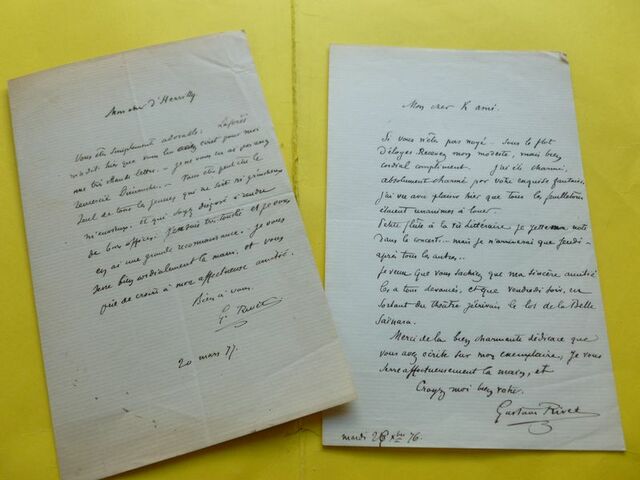 Mon cher d'Hervilly,
Vous êtes simplement adorable. Lafontès
m'a dit hier que vous lui aviez écrit pour moi
une très chaude lettre. Je ne vous en ai pas assez
remercié Dimanche. Vous êtes peut être le
seul de tous les jeunes qui ne soit ni grincheux
ni envieux, et qui soyez disposé à rendre
de bons offices. J'en suis très touché et je vous
en ai une grande reconnaissance. Je vous
serre bien cordialement la main, et vous
prie de croire à mon affectueuse amitié.
Bien à vous.
G. Rivet
20 mars 77.
Mon cher K ami.
Si vous n'êtes pas noyé sous le flot
d'éloges. Recevez mon modeste, mais bien
cordial compliment. J'ai été charmé,
absolument charmé par votre exquise fantaisie.
J'ai vu avec plaisir hier que tous les feuilletons
étaient unanimes à louer.
Petite flûte à la vie littéraire, je jetterai ma note
dans le concert... mais je n'arriverai que jeudi
après tous les autres..
Je veux que vous sachiez que ma sincère amitié
les a tous devancés, et que vendredi soir, en
sortant du théâtre j'écrivais le los de la Belle
Saïnara.
Merci de la bien charmante dédicace que
vous avez écrite sur mon exemplaire, Je vous
serre affectueusement la main, et
Croyez moi bien votre.
Gustave Rivet
mardi 26 Xbre 76.